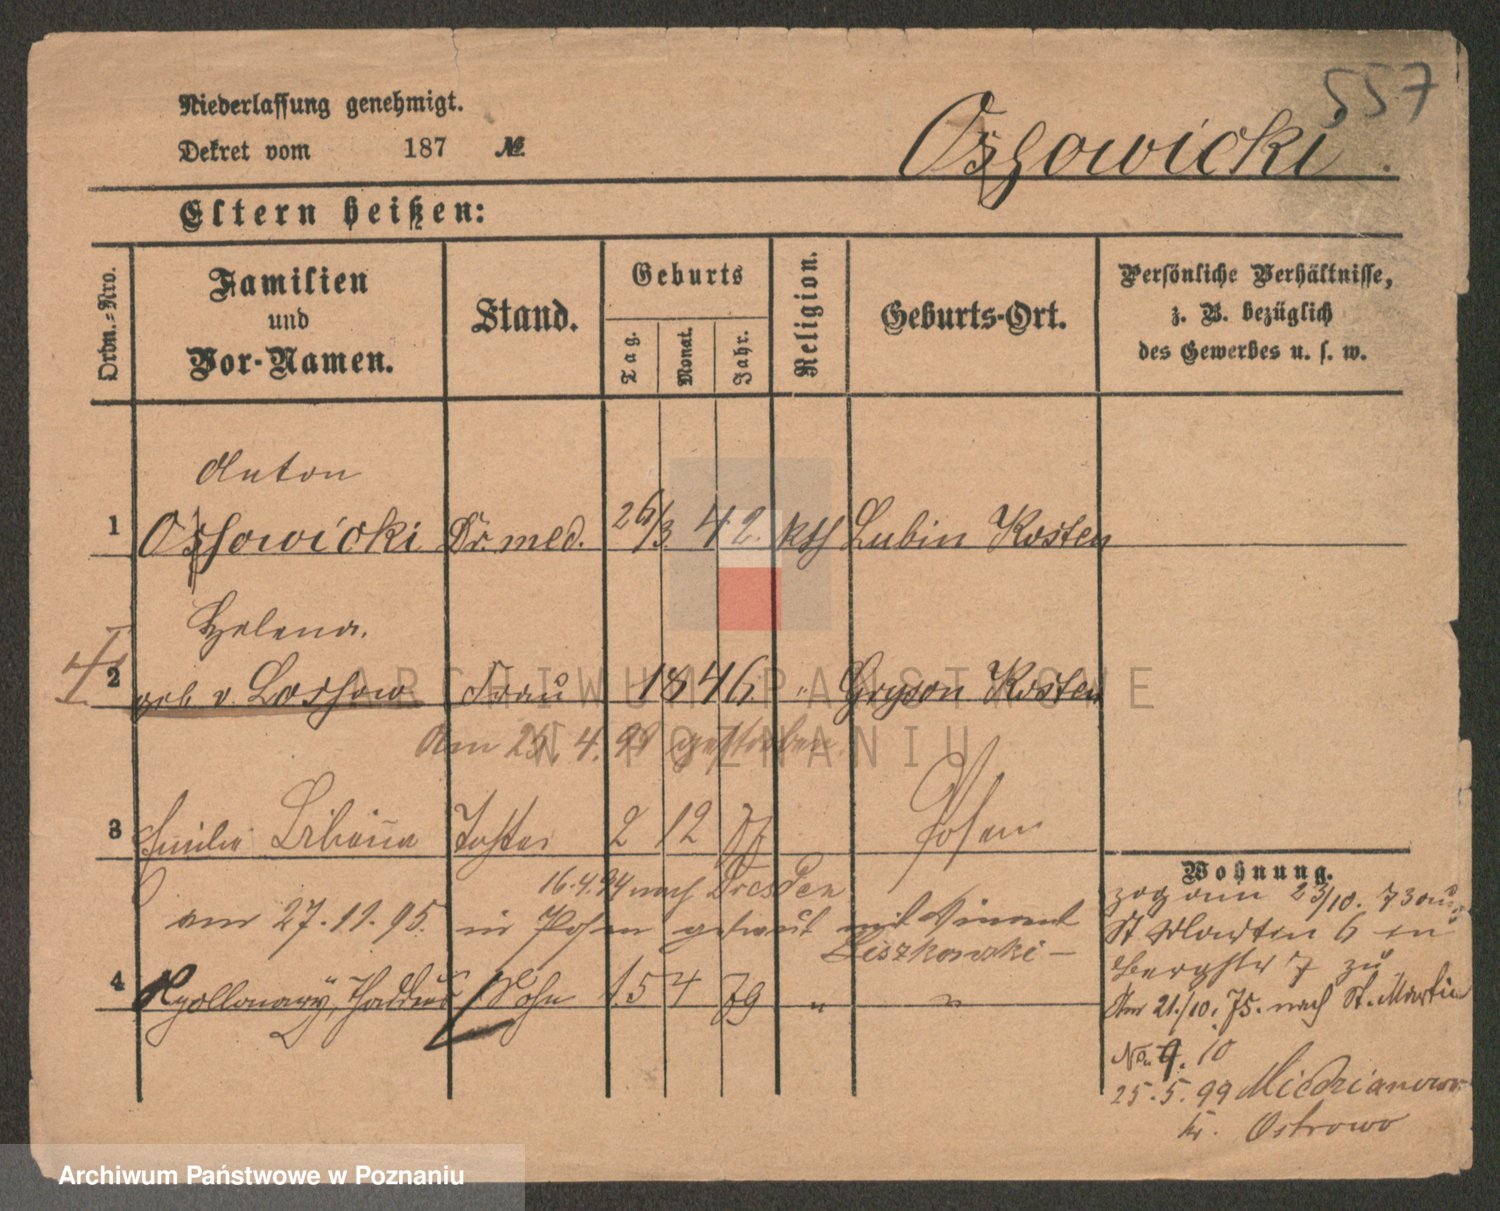 557
Niederlassung genehmigt.
Dekret vom 187 №
Oszowicki.
Eltern heißen:
Ordn.-Nro.
Familien
und
Vor-Namen.
Stand.
Geburts
Tag.
Monat.
Jahr.
Religion.
Geburts-Ort.
Persönliche Verhältnisse,
z. B. bezüglich
des Gewerbes u. s. w.
Anton
1 Oszowicki Dr. med. 26/3. 42. kth Lubin Kosten
Helena.
2 geb v. Lossow Frau 1846. " Gryson Kosten
Am 25. 4. 99 gestorben.
3 Emilie Bibiana Tochter 2 12 77 Posen
16.4.94 nach Dresden
am 27.11.95. in Posen getraut mit Vincent
Liszkowski —
4 Apollonary, Thaddeus Sohn 15 4 79 " "
Wohnung.
zog am 23/10. 73 aus
St Martin 6 in
Bergstr 7 zu
Am 21./10. 75. nach St. Martin
No. 9. 10
25.5.99 Miedzianowo
Kr. Ostrowo
ARCHIWUM PAŃSTWOWE
W POZNANIU
Archiwum Państwowe w Poznaniu